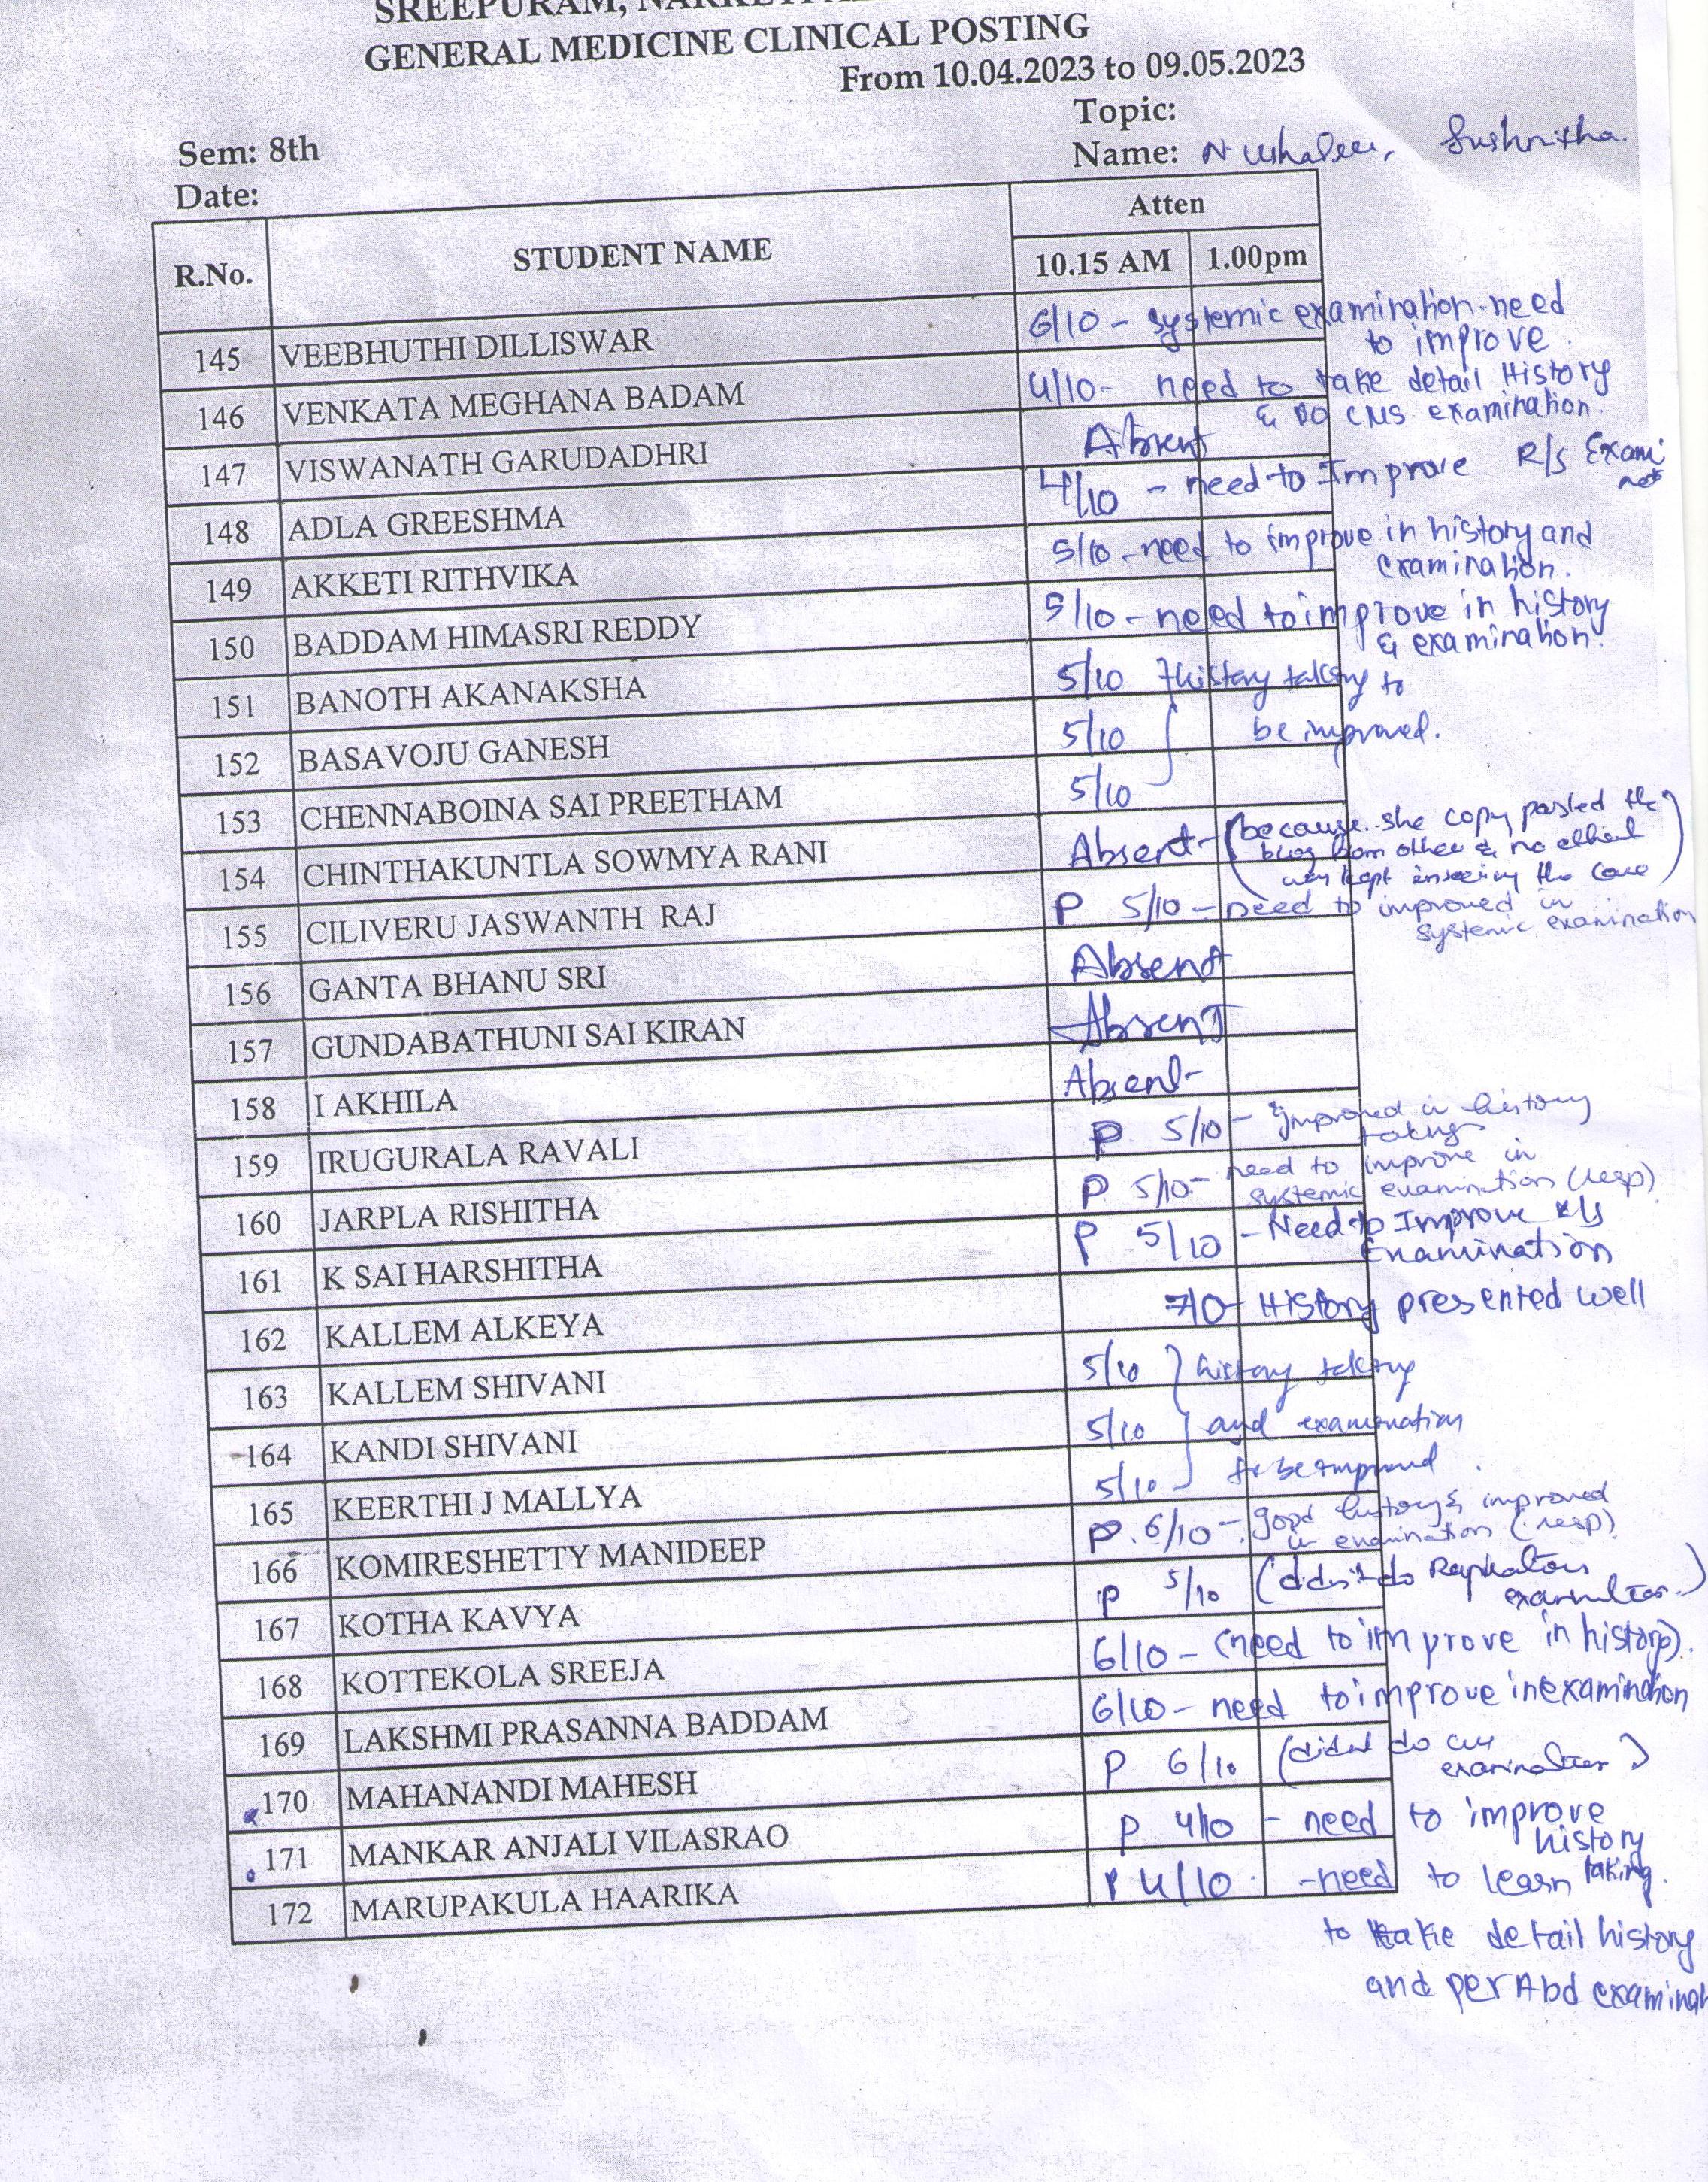 SREEPURAM,
GENERAL MEDICINE CLINICAL POSTING
From 10.04.2023 to 09.05.2023
Topic:
Sem: 8th
Name: Sushmitha.
Date:
R.No. STUDENT NAME Atten
10.15 AM 1.00pm
145 VEEBHUTHI DILLISWAR 6/10 - systemic examination-need
to improve.
146 VENKATA MEGHANA BADAM 4/10- need to take detail History
& DO CNS examination.
147 VISWANATH GARUDADHRI Absent
148 ADLA GREESHMA 4/10 - need to Improve R/s Exami
149 AKKETI RITHVIKA 5/10 - need to improve in history and
examination.
150 BADDAM HIMASRI REDDY 5/10 - need to improve in history
& examination.
151 BANOTH AKANAKSHA 5/10 History taking to
152 BASAVOJU GANESH 5/10 be improved.
153 CHENNABOINA SAI PREETHAM 5/10
154 CHINTHAKUNTLA SOWMYA RANI Absent- (because she copy pasted the
blog from other & no
the case)
155 CILIVERU JASWANTH RAJ P 5/10 - need to improved in
systemic examination
156 GANTA BHANU SRI Absent
157 GUNDABATHUNI SAI KIRAN Absent
158 I AKHILA Absent-
159 IRUGURALA RAVALI P 5/10 - Improved in history
taking
160 JARPLA RISHITHA P 5/10- need to improve in
systemic examination (resp)
161 K SAI HARSHITHA P 5/10 - Need to Improve R/s
Examination
162 KALLEM ALKEYA 7/10- History presented well
163 KALLEM SHIVANI 5/10 history taking
164 KANDI SHIVANI 5/10 and examination
165 KEERTHI J MALLYA 5/10 to be improved.
166 KOMIRESHETTY MANIDEEP P. 6/10 - good history & improved
in examination (resp)
167 KOTHA KAVYA P 5/10 (didn't do Respiratory
examination)
168 KOTTEKOLA SREEJA 6/10 - (need to improve in history).
169 LAKSHMI PRASANNA BADDAM 6/10 - need to improve in examination
170 MAHANANDI MAHESH P 6/10 (didnt do
examination)
171 MANKAR ANJALI VILASRAO P 4/10 - need to improve
history
taking.
172 MARUPAKULA HAARIKA P 4/10 - need to learn
to take detail history
and per Abd examinat